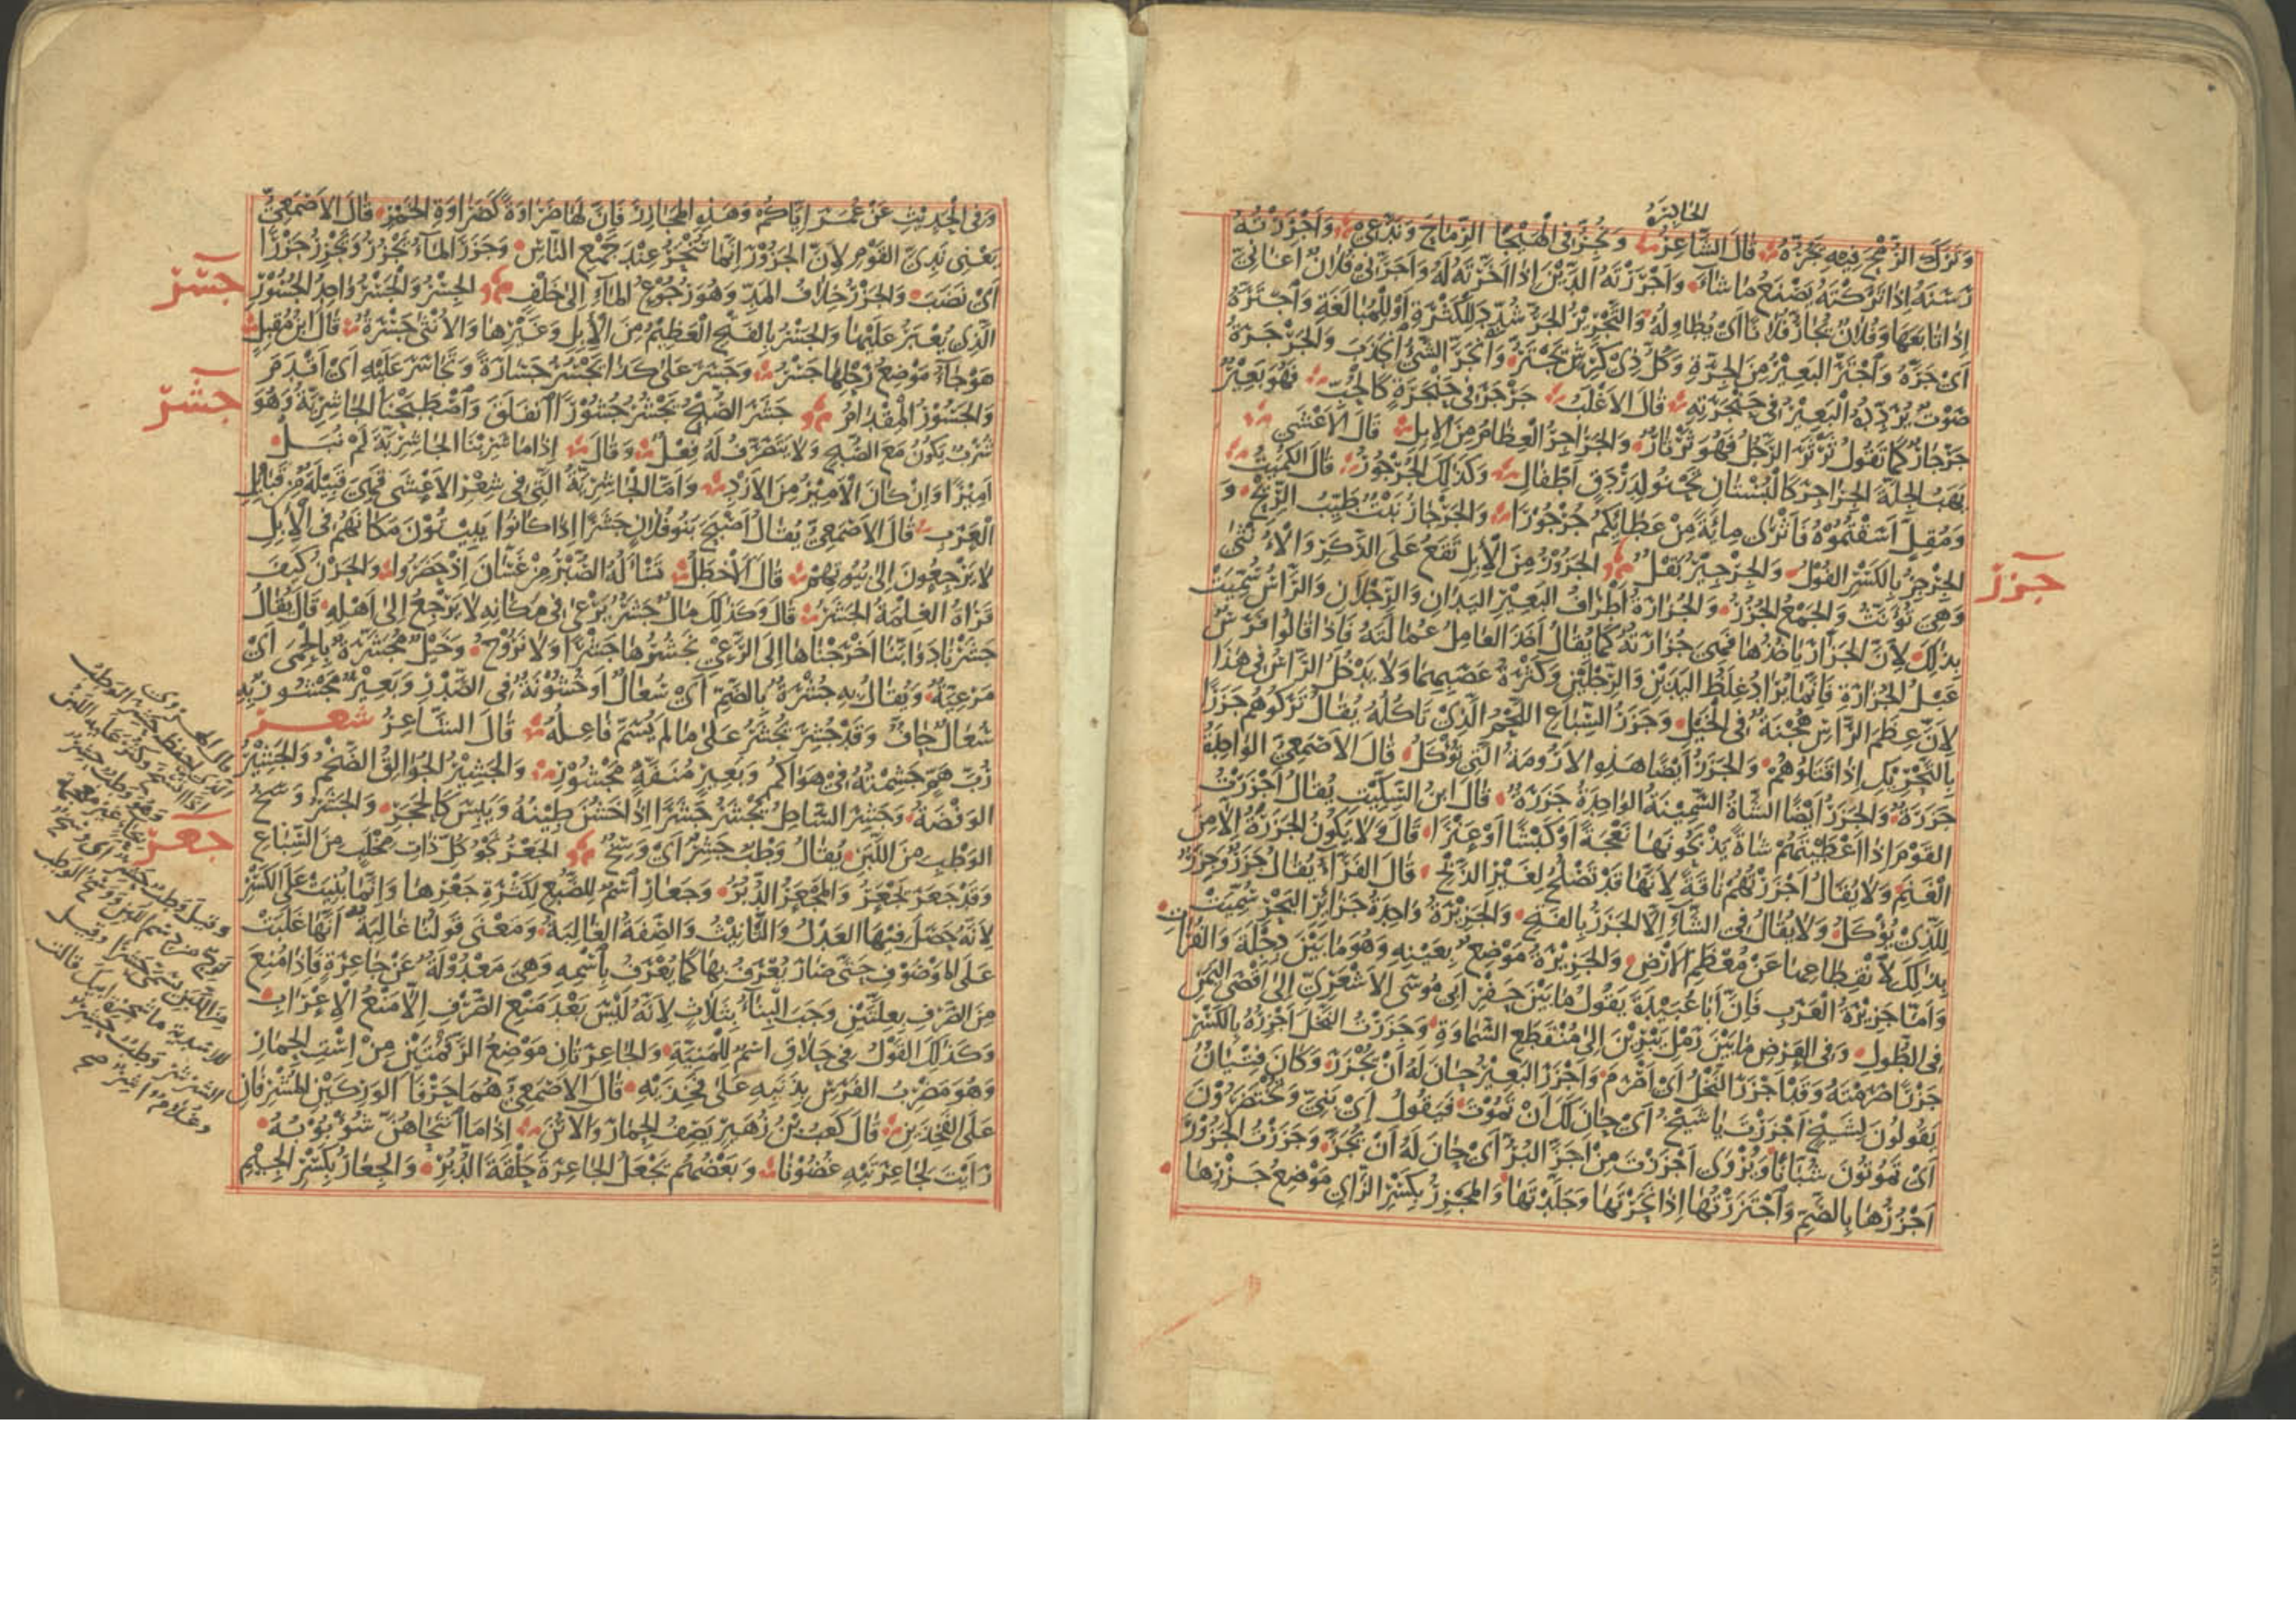 الحادرة
وَتَرَكَ الرُّمْحَ فِيهِ يَجُرُّهُ قَالَ الشَّاعِرُ وَنَجُرُّ فِي الْهَيْجَا الرِّمَاحَ وَنَدَّعِي وَأَجْرَرْتُهُ
رَسَنَهُ إِذَا تَرَكْتَهُ يَصْنَعُ مَا شَاءَ وَأَجْرَرْتُهُ الدَّيْنَ إِذَا أَخَّرْتَهُ لَهُ وَأَجَرَّنِي فُلَانٌ أَغَانِيَّ
إِذَا تَابَعَهَا وَفُلَانٌ يُجَارُّ فُلَانًا أَيْ يُطَاوِلُهُ وَالتَّجْرِيرُ الْجَرُّ شُدِّدَ لِلْكَثْرَةِ أَوْ لِلْمُبَالَغَةِ وَاجْتَرَّهُ
أَيْ جَرَّهُ وَاجْتَرَّ الْبَعِيرُ مِنَ الْجِرَّةِ وَكُلُّ ذِي كَرِشٍ يَجْتَرُّ وَانْجَرَّ الشَّيْءُ انْجَذَبَ وَالْجَرْجَرَةُ
صَوْتٌ يُرَدِّدُهُ الْبَعِيرُ فِي حَنْجَرَتِهِ قَالَ الْأَغْلَبُ جَرْجَرَ فِي حَنْجَرَةٍ كَالْحُبِّ فَهُوَ بَعِيرٌ
جَرْجَارٌ كَمَا تَقُولُ ثَرْثَرَ الرَّجُلُ فَهُوَ ثَرْثَارٌ وَالْجَرَاجِرُ الْعِظَامُ مِنَ الْإِبِلِ قَالَ الْأَعْشَى
يَهَبُ الْجِلَّةَ الْجَرَاجِرَ كَالْبُسْتَانِ تَحْنُو لِدَرْدَقٍ أَطْفَالِ وَكَذَلِكَ الْجُرْجُورُ قَالَ الْكُمَيْتُ
وَمُقِلٍّ أَسَقْتُمُوهُ فَأَثْرَى مِائَةً مِنْ عَطَائِكُمْ جُرْجُورَا وَالْجَرْجَارُ نَبْتٌ طَيِّبُ الرِّيحِ وَ
الْجِرْجِرُ بِالْكَسْرِ الْفُولُ وَالْجِرْجِيرُ بَقْلٌ الْجَزُورُ مِنَ الْإِبِلِ تَقَعُ عَلَى الذَّكَرِ وَالْأُنْثَى
جزر
وَهِيَ تُؤَنَّثُ وَالْجَمْعُ الْجُزُرُ وَالْجُزَارَةُ أَطْرَافُ الْبَعِيرِ الْيَدَانِ وَالرِّجْلَانِ وَالرَّأْسُ سُمِّيَتْ
بِذَلِكَ لِأَنَّ الْجَزَّارَ يَأْخُذُهَا فَهِيَ جُزَارَتُهُ كَمَا يُقَالُ أَخَذَ الْعَامِلُ عُمَالَتَهُ فَإِذَا قَالُوا فَرَسٌ
عَبْلُ الْجُزَارَةِ فَإِنَّمَا يُرَادُ غِلَظُ الْيَدَيْنِ وَالرِّجْلَيْنِ وَكَثْرَةُ عَصَبِهِمَا وَلَا يَدْخُلُ الرَّأْسُ فِي هَذَا
لِأَنَّ عِظَمَ الرَّأْسِ هُجْنَةٌ فِي الْخَيْلِ وَجَزَرُ السِّبَاعِ اللَّحْمُ الَّذِي تَأْكُلُهُ يُقَالُ تَرَكُوهُمْ جَزَرًا
بِالتَّحْرِيكِ إِذَا قَتَلُوهُمْ وَالْجَزَرُ أَيْضًا هَذِهِ الْأَرُومَةُ الَّتِي تُؤْكَلُ قَالَ الْأَصْمَعِيُّ الْوَاحِدَةُ
جَزَرَةٌ وَالْجَزَرُ أَيْضًا الشَّاةُ السَّمِينَةُ الْوَاحِدَةُ جَزَرَةٌ قَالَ ابْنُ السِّكِّيتِ يُقَالُ أَجْزَرْتُ
الْقَوْمَ إِذَا أَعْطَيْتَهُمْ شَاةً يَذْبَحُونَهَا نَعْجَةً أَوْ كَبْشًا أَوْ عَنْزًا قَالَ وَلَا يَكُونُ الْجَزَرَةُ إِلَّا مِنَ
الْغَنَمِ وَلَا يُقَالُ أَجْزَرْتُهُمْ نَاقَةً لِأَنَّهَا قَدْ تَصْلُحُ لِغَيْرِ الذَّبْحِ قَالَ الْفَرَّاءُ يُقَالُ جَزَرٌ وَجِزَرٌ
لِلَّذِي يُؤْكَلُ وَلَا يُقَالُ فِي الشَّاءِ إِلَّا الْجَزَرُ بِالْفَتْحِ وَالْجَزِيرَةُ وَاحِدَةُ جَزَائِرِ الْبَحْرِ سُمِّيَتْ
بِذَلِكَ لِانْقِطَاعِهَا عَنْ مُعْظَمِ الْأَرْضِ وَالْجَزِيرَةُ مَوْضِعٌ بِعَيْنِهِ وَهُوَ مَا بَيْنَ دِجْلَةَ وَالْفُرَاتِ
وَأَمَّا جَزِيرَةُ الْعَرَبِ فَإِنَّ أَبَا عُبَيْدَةَ يَقُولُ مَا بَيْنَ حَفَرِ أَبِي مُوسَى الْأَشْعَرِيِّ إِلَى أَقْصَى الْيَمَنِ
فِي الطُّولِ وَفِي الْعَرْضِ مَا بَيْنَ رَمْلِ يَبْرِينَ إِلَى مُنْقَطَعِ السَّمَاوَةِ وَجَزَرْتُ النَّخْلَ أَجْزِرُهُ بِالْكَسْرِ
جَزْرًا صَرَمْتُهُ وَقَدْ أَجْزَرَ النَّخْلُ أَيْ أَصْرَمَ وَأَجْزَرَ الْبَعِيرُ حَانَ لَهُ أَنْ يُجْزَرَ وَكَانَ فِتْيَانٌ
يَقُولُونَ لِشَيْخٍ أَجْزَرْتَ يَا شَيْخُ أَيْ حَانَ لَكَ أَنْ تَمُوتَ فَيَقُولُ أَيْ بَنِيَّ وَتُخْتَضَرُونَ
أَيْ تَمُوتُونَ شُبَّانًا وَيُرْوَى أَجْزَزْتَ مِنْ أَجَزَّ الْبُرُّ أَيْ حَانَ لَهُ أَنْ يُجَزَّ وَجَزَرْتُ الْجَزُورَ
أَجْزُرُهَا بِالضَّمِّ وَاجْتَزَرْتُهَا إِذَا نَحَرْتَهَا وَجَلَّدْتَهَا وَالْمَجْزِرُ بِكَسْرِ الزَّايِ مَوْضِعُ جَزْرِهَا
وَفِي الْحَدِيثِ عَنْ عُمَرَ إِيَّاكُمْ وَهَذِهِ الْمَجَازِرَ فَإِنَّ لَهَا ضَرَاوَةً كَضَرَاوَةِ الْخَمْرِ قَالَ الْأَصْمَعِيُّ
يَعْنِي نَدِيَّ الْقَوْمِ لِأَنَّ الْجَزُورَ إِنَّمَا تُنْحَرُ عِنْدَ جَمْعِ النَّاسِ وَجَزَرَ الْمَاءُ يَجْزُرُ وَيَجْزِرُ جَزْرًا
أَيْ نَضَبَ وَالْجَزْرُ خِلَافُ الْمَدِّ وَهُوَ رُجُوعُ الْمَاءِ إِلَى خَلْفٍ الْجِسْرُ وَالْجَسْرُ وَاحِدُ الْجُسُورِ
جسر
الَّذِي يُعْبَرُ عَلَيْهَا وَالْجَسْرُ بِالْفَتْحِ الْعَظِيمُ مِنَ الْإِبِلِ وَغَيْرِهَا وَالْأُنْثَى جَسْرَةٌ قَالَ ابْنُ مُقْبِلٍ
هَوْجَاءُ مَوْضِعُ رَحْلِهَا جَسْرُ وَجَسَرَ عَلَى كَذَا يَجْسُرُ جَسَارَةً وَتَجَاسَرَ عَلَيْهِ أَيْ أَقْدَمَ
وَالْجَسُورُ الْمِقْدَامُ جَشَرَ الصُّبْحُ يَجْشُرُ جُشُورًا انْفَلَقَ وَاصْطَبَحْنَا الْجَاشِرِيَّةَ وَهُوَ
جشر
شُرْبٌ يَكُونُ مَعَ الصُّبْحِ وَلَا يَتَصَرَّفُ لَهُ فِعْلٌ وَقَالَ إِذَا مَا شَرِبْنَا الْجَاشِرِيَّةَ لَمْ نُبَلْ
أَمِيرًا وَإِنْ كَانَ الْأَمِيرُ مِنَ الْأَزْدِ وَأَمَّا الْجَاشِرِيَّةُ الَّتِي فِي شِعْرِ الْأَعْشَى فَهِيَ قَبِيلَةٌ مِنْ قَبَائِلِ
الْعَرَبِ قَالَ الْأَصْمَعِيُّ يُقَالُ أَصْبَحَ بَنُو فُلَانٍ جَشَرًا إِذَا كَانُوا يَبِيتُونَ مَكَانَهُمْ فِي الْإِبِلِ
لَا يَرْجِعُونَ إِلَى بُيُوتِهِمْ قَالَ الْأَخْطَلُ تَسْأَلُهُ الصُّبْرُ مِنْ غَسَّانَ إِذْ حَضَرُوا وَالْحَزْنُ كَيْفَ
قَرَاهُ الْغِلْمَةُ الْجَشَرُ قَالَ وَكَذَلِكَ مَالٌ جَشَرٌ يَرْعَى فِي مَكَانِهِ لَا يَرْجِعُ إِلَى أَهْلِهِ قَالَ يُقَالُ
جَشَرْنَا دَوَابَّنَا أَخْرَجْنَاهَا إِلَى الرَّعْيِ نَجْشُرُهَا جَشْرًا وَلَا نَرُوحُ وَخَيْلٌ مُجَشَّرَةٌ بِالْحِمَى أَيْ
مَرْعِيَّةٌ وَيُقَالُ بِهِ جُشْرَةٌ بِالضَّمِّ أَيْ سُعَالٌ أَوْ خُشُونَةٌ فِي الصَّدْرِ وَبَعِيرٌ مَجْشُورٌ بِهِ
سُعَالٌ جَافٌّ وَقَدْ جُشِرَ يُجْشَرُ عَلَى مَا لَمْ يُسَمَّ فَاعِلُهُ قَالَ الشَّاعِرُ شعر
رُبَّ هَمٍّ جَشَمْتُهُ فِي هَوَاكُمْ وَبَعِيرٍ مُنَفَّهٍ مَجْشُورِ وَالْجَشِيرُ الْجُوَالِقُ الضَّخْمُ وَالْجَشِيرُ
الْوَفْضَةُ وَجَشِرَ السَّاحِلُ يَجْشَرُ جَشَرًا إِذَا خَشُنَ طِينُهُ وَيَبِسَ كَالْحَجَرِ وَالْجَشَرُ وَسَخُ
الْوَطْبِ مِنَ اللَّبَنِ يُقَالُ وَطْبٌ جَشِرٌ أَيْ وَسِخٌ الْجَعْرُ نَجْوُ كُلِّ ذَاتِ مِخْلَبٍ مِنَ السِّبَاعِ
جعر
وَقَدْ جَعَرَ يَجْعَرُ وَالْمَجْعَرُ الدُّبُرُ وَجَعَارِ اسْمٌ لِلضَّبُعِ لِكَثْرَةِ جَعْرِهَا وَإِنَّمَا بُنِيَتْ عَلَى الْكَسْرِ
لِأَنَّهُ حَصَلَ فِيهَا الْعَدْلُ وَالتَّأْنِيثُ وَالصِّفَةُ الْغَالِبَةُ وَمَعْنَى قَوْلِنَا غَالِبَةٌ أَنَّهَا غَلَبَتْ
عَلَى الْمَوْصُوفِ حَتَّى صَارَ يُعْرَفُ بِهَا كَمَا يُعْرَفُ بِاسْمِهِ وَهِيَ مَعْدُولَةٌ عَنْ جَاعِرَةٍ فَإِذَا مُنِعَ
مِنَ الصَّرْفِ بِعِلَّتَيْنِ وَجَبَ الْبِنَاءُ بِثَلَاثٍ لِأَنَّهُ لَيْسَ بَعْدَ مَنْعِ الصَّرْفِ إِلَّا مَنْعُ الْإِعْرَابِ
وَكَذَلِكَ الْقَوْلُ فِي حَلَاقِ اسْمٌ لِلْمَنِيَّةِ وَالْجَاعِرَتَانِ مَوْضِعُ الرَّقْمَتَيْنِ مِنِ اسْتِ الْحِمَارِ
وَهُوَ مَضْرِبُ الْفَرَسِ بِذَنَبِهِ عَلَى فَخِذَيْهِ قَالَ الْأَصْمَعِيُّ هُمَا حَرْفَا الْوَرِكَيْنِ الْمُشْرِفَانِ
عَلَى الْفَخِذَيْنِ قَالَ كَعْبُ بْنُ زُهَيْرٍ يَصِفُ الْحِمَارَ وَالْأُتُنَ إِذَا مَا انْتَحَاهُنَّ شُؤْبُوبُهُ
رَأَيْتَ لِجَاعِرَتَيْهِ غُضُونَا وَبَعْضُهُمْ يَجْعَلُ الْجَاعِرَةَ حَلْقَةَ الدُّبُرِ وَالْجِعَارُ بِكَسْرِ الْجِيمِ